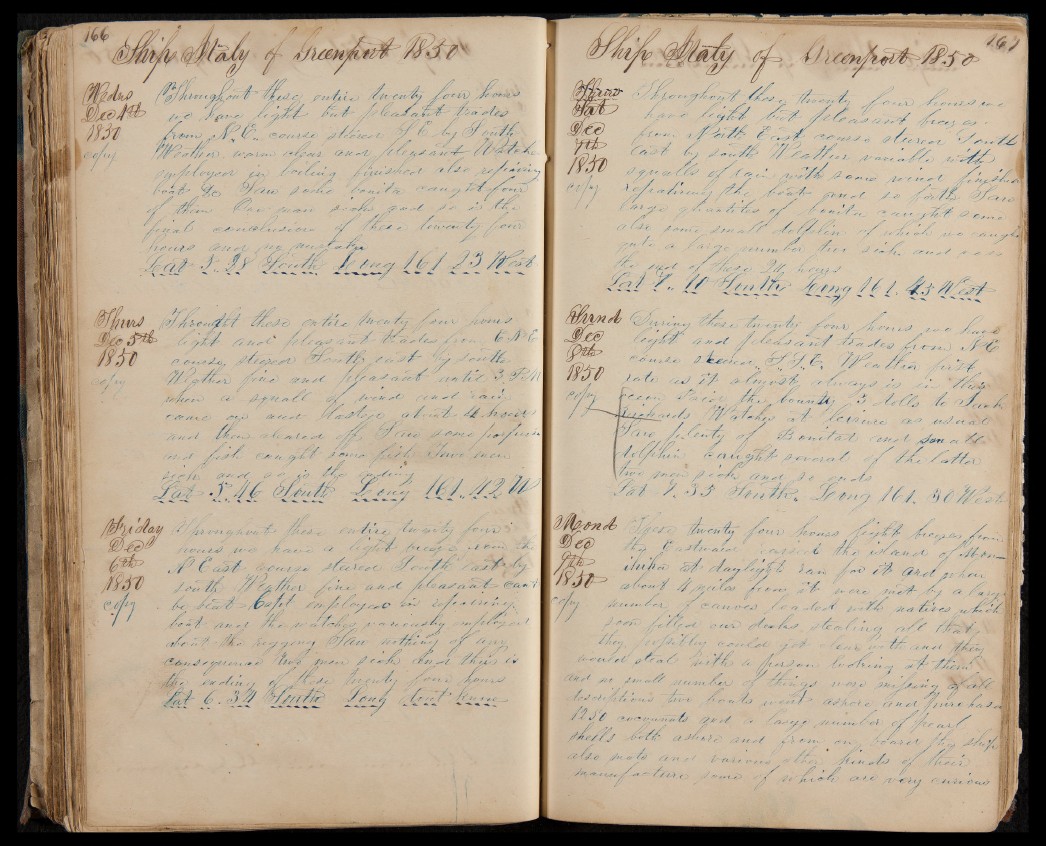 166
Ship Italy of Greenport 1850
Weds
Dec 4th
1850
copy
Throughout these entire twenty four hours
we have light but pleasant trades
from N.E. course steered S.E. by South
Weather warm clear and pleasant Watch
employed in finished also repairing
boat &c Saw some bonita caught four
of them One man sick and so is the
final conclusion of these twenty four
hours and no mistake
Lat 5.. 28 South Long 161.. 23 West
Thurs
Dec 5th
1850
copy
Throught these entire twenty four hours
light and pleasant trades from E.N.E
course steered South east by south
Weather fine and pleasant until 3 P.M
when a squall of wind and rain
came up and lasted about hours
and then cleared off Saw some porpoises
and fish caught some fish two men
sick and so is the ending
Lat 5.. 46 South Long 161.. 42 W
Friday
Dec
6th
1850
copy
Throughout these entire twenty four
hours we have a light breeze from the
N East course steered South east by
south Weather fine and pleasant cant
be beat Capt employed in repairing
boat and the watches variously employed
about the rigging Saw nothing of any
consequence two men sick And thus is
the ending of these twenty four hours
Lat 6.. 34 South Long dont know
167
Ship Italy of Greenport 1850
Sat
Dec
7th
1850
copy
Throughout these twenty four hours we
have light but pleasant breezes
from North East course steered South
East by south Weather variable with
squalls of rain with some wind finished
repairing the boat and so forth Saw
large quantities of bonita caught some
also some small dolphin of which we caught
quite a large number two sick and so is
the end of these 24 hours
Lat 7.. 11 South Long 161.. 45 West
Sund
Dec
8th
1850
copy
During these twenty four hours we have
light and pleasant trades from N.E
course steered S.S.E. Weather first
rate as it almost always is in this
ocean the bounty 3 bells to
Watches at leisure as usual
Saw plenty of Bonitas and small
dolphin caught several of the latter
two men sick and so ends
Lat 7.. 55 South Long 161.. 50 West
Mond
Dec
9th
1850
copy
These twenty four hours light breezes from
the Eastward raised the island of
at daylight ran for it and when
about 4 miles from it were met by a large
number of canoes loaded with natives which
soon filled our decks, stealing all that
they possibly could get clear with and they
would steal with a person looking at them
and no small number of things were missing of all
descriptions two boats went ashore and purchased
1250 cocoanuts and a large number of pearl
shells both ashore and from on board the ship
also mats and various other kinds of their
manufacture some of which are very curious